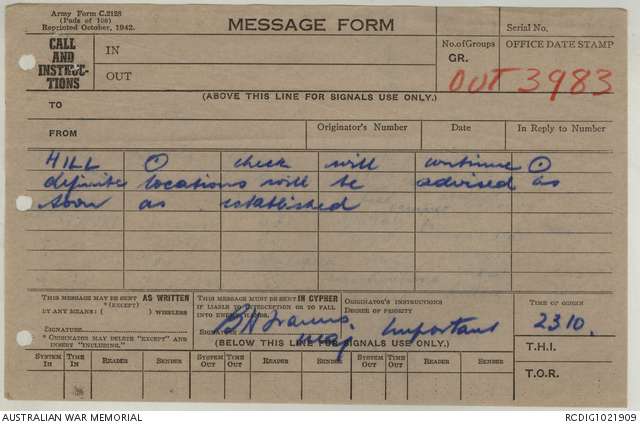 Army Form C.2128
(Pads of 100)
Reprinted October, 1942.
MESSAGE FORM
Serial No.
CALL AND INSTRUCTIONS
IN
OUT
No. of Groups
GR.
OFFICE DATE STAMP
OUT 3983
(ABOVE THIS LINE FOR SIGNALS USE ONLY.)
TO
FROM
Originator's Number
Date
In Reply to Number
HILL ⊙ check will continue ⊙
definite locations will be advised as
soon as established
THIS MESSAGE MAY BE SENT AS WRITTEN
*(EXCEPT)
BY ANY MEANS: ( ) WIRELESS
SIGNATURE
* ORIGINATOR MAY DELETE "EXCEPT" AND INSERT "INCLUDING."
THIS MESSAGE MUST BE SENT IN CYPHER
IF LIABLE TO INTERCEPTION OR TO FALL INTO ENEMY HANDS.
Maj
ORIGINATOR'S INSTRUCTIONS
DEGREE OF PRIORITY
Important
TIME OF ORIGIN
2310.
(BELOW THIS LINE FOR SIGNALS USE ONLY.)
T.H.I.
T.O.R.
SYSTEM IN
TIME IN
READER
SENDER
SYSTEM OUT
TIME OUT
READER
SENDER
SYSTEM OUT
TIME OUT
READER
SENDER
AUSTRALIAN WAR MEMORIAL
RCDIG1021909